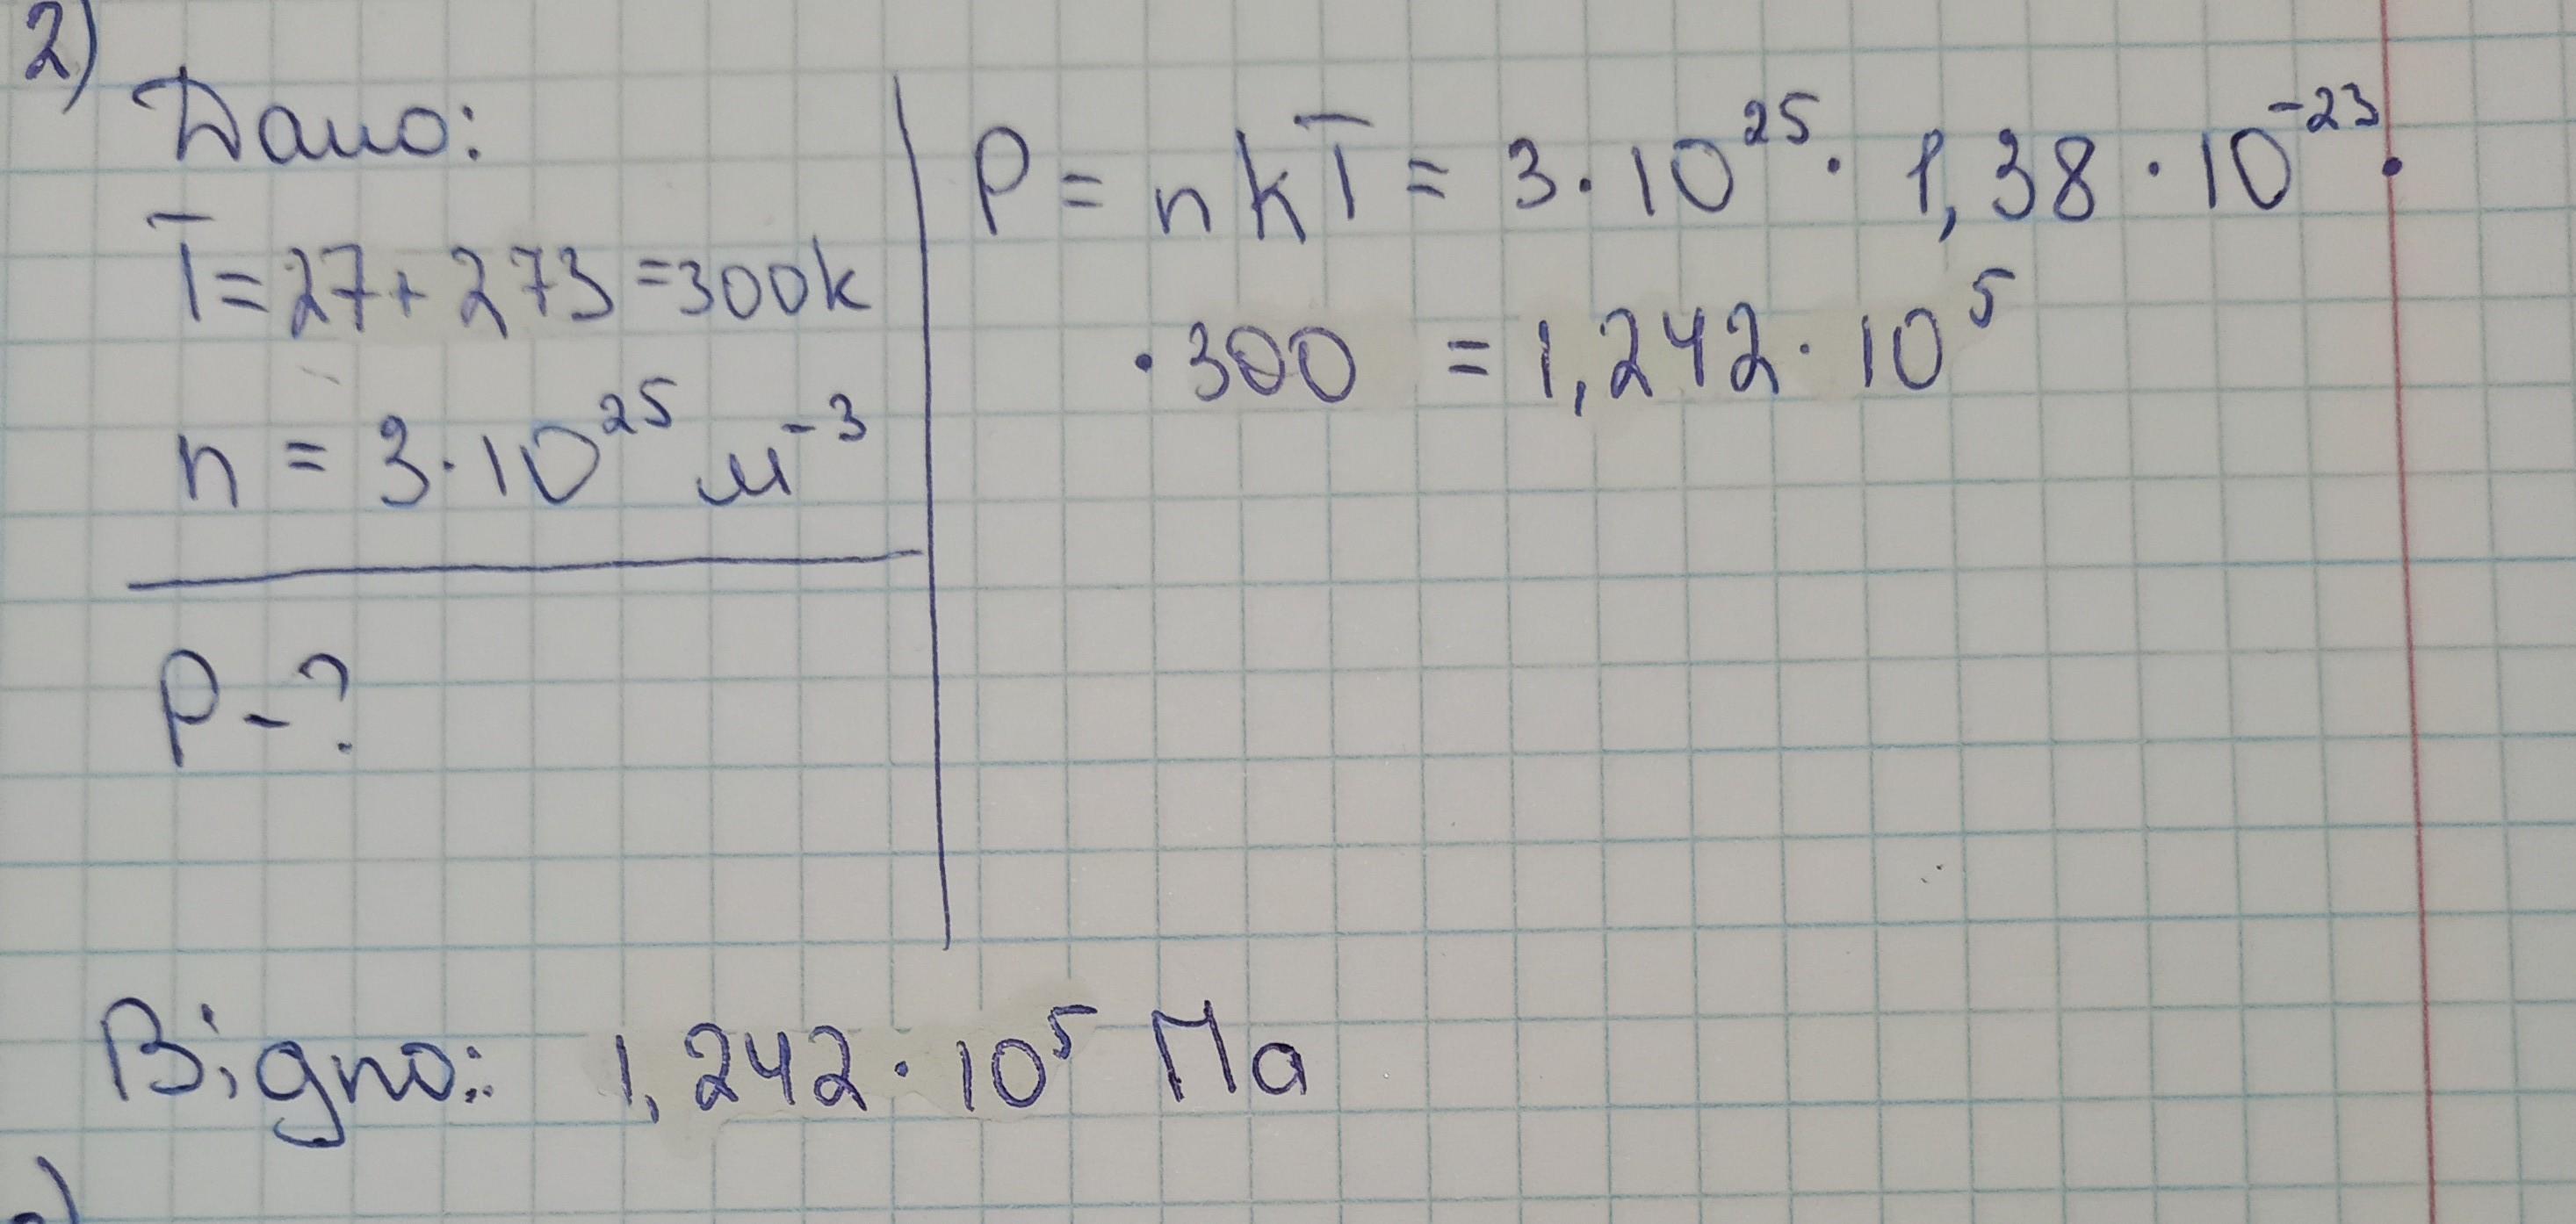 2)
Дано:
T = 27 + 273 = 300k
n = 3 · 10²⁵ м⁻³
P - ?
P = nkT = 3 · 10²⁵ · 1,38 · 10⁻²³ ·
· 300 = 1,242 · 10⁵
Відпо.: 1,242 · 10⁵ Па